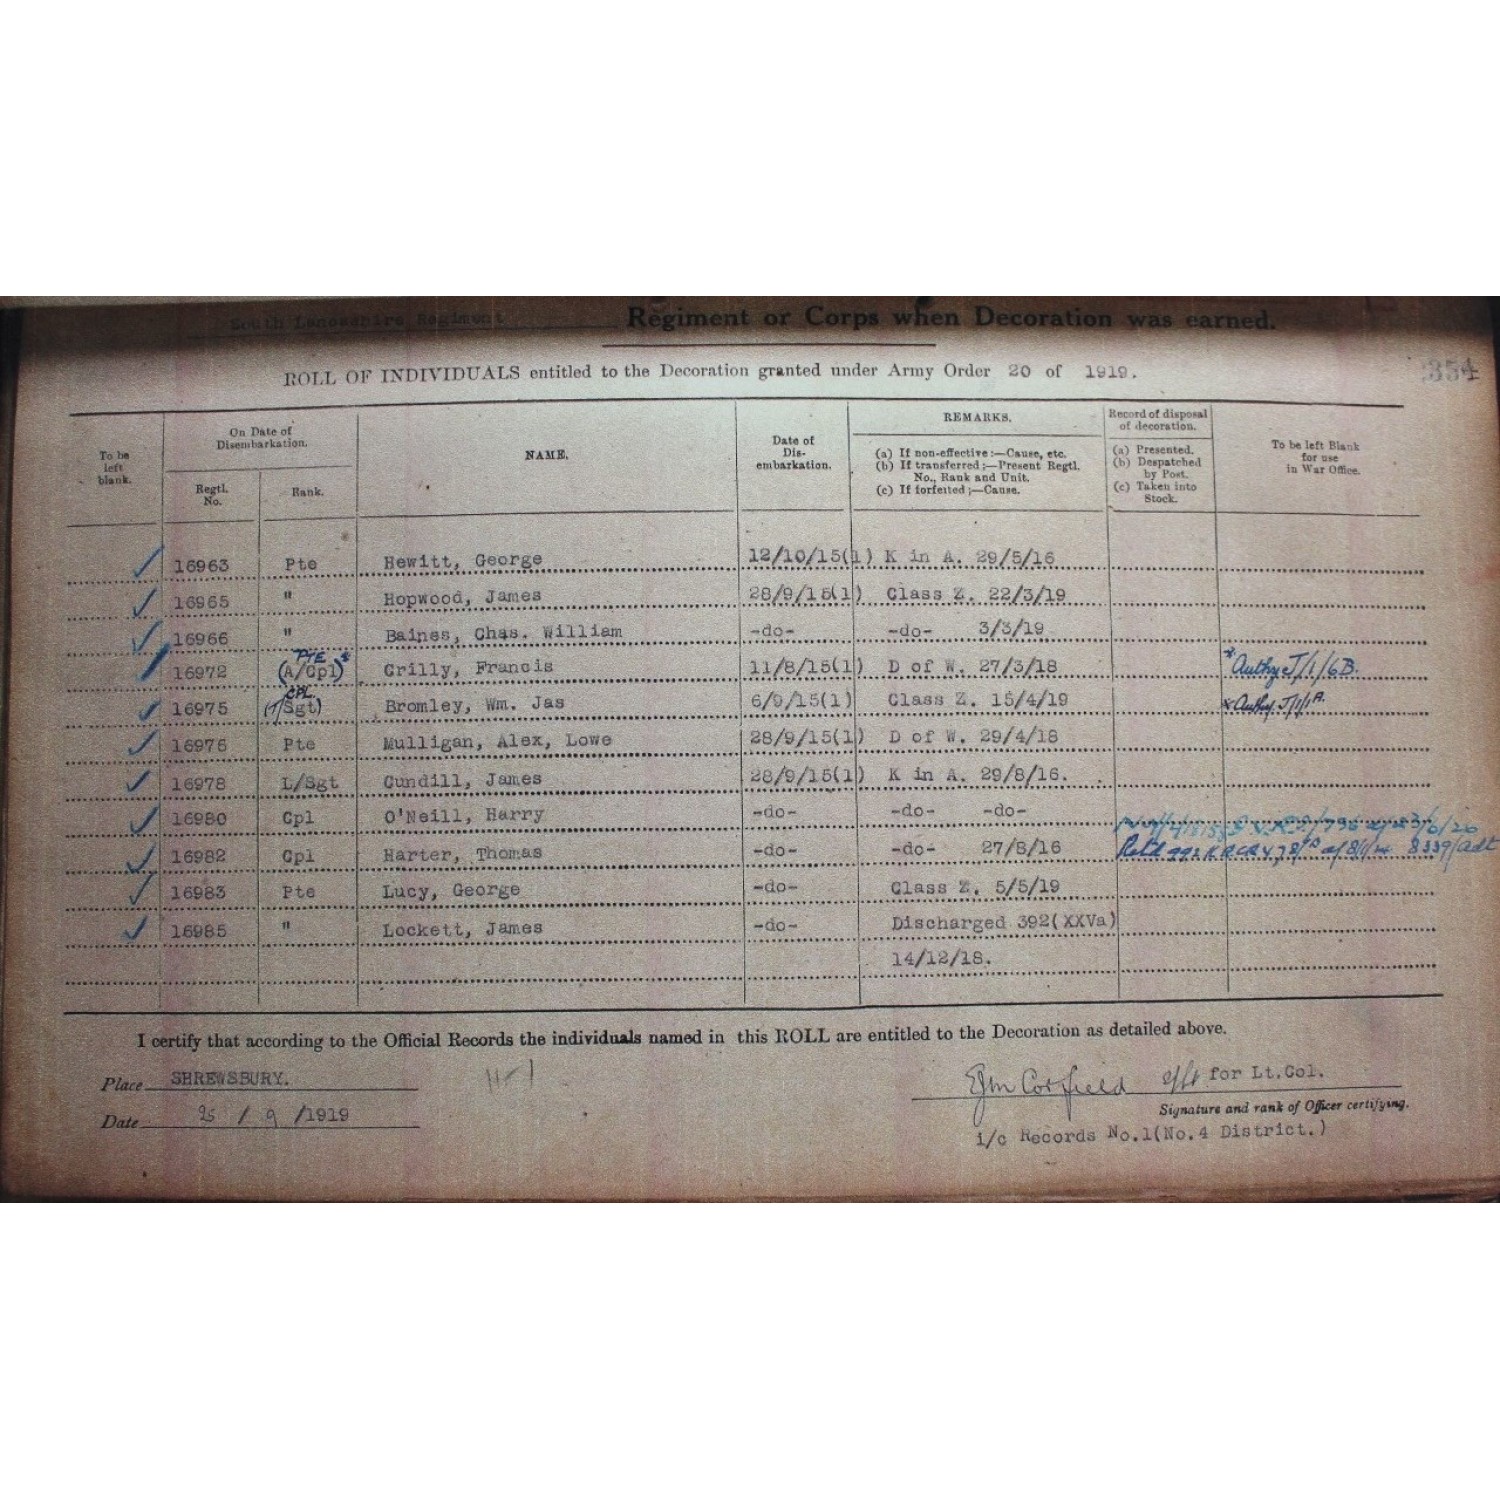 South Lancashire Regiment Regiment or Corps when Decoration was earned.
354
ROLL OF INDIVIDUALS entitled to the Decoration granted under Army Order 20 of 1919.
To be left blank.
On Date of Disembarkation.
Regtl. No.
Rank.
NAME.
Date of Dis-embarkation.
REMARKS.
(a) If non-effective:—Cause, etc.
(b) If transferred;—Present Regtl.
No., Rank and Unit.
(c) If forfeited;—Cause.
Record of disposal of decoration.
(a) Presented.
(b) Despatched by Post.
(c) Taken into Stock.
To be left Blank for use in War Office.
16963 Pte Hewitt, George 12/10/15(1) K in A. 29/5/16
16965 " Hopwood, James 28/9/15(1) Class Z. 22/3/19
16966 " Baines, Chas. William -do- -do- 3/3/19
PTE
16972 (A/Cpl)* Crilly, Francis 11/8/15(1) D of W. 27/3/18 * Authy J/1/6B.
CPL
16975 (T/Sgt) Bromley, Wm. Jas 6/9/15(1) Class Z. 15/4/19 * Authy. J/1/1A.
16976 Pte Mulligan, Alex, Lowe 28/9/15(1) D of W. 29/4/18
16978 L/Sgt Cundill, James 28/9/15(1) K in A. 29/8/16.
16980 Cpl O'Neill, Harry -do- -do- -do-
16982 Cpl Harter, Thomas -do- -do- 27/8/16 Retd 992 8339/Adt
16983 Pte Lucy, George -do- Class Z. 5/5/19
16985 " Lockett, James -do- Discharged 392(XXVa)
14/12/18.
I certify that according to the Official Records the individuals named in this ROLL are entitled to the Decoration as detailed above.
Place SHREWSBURY.
Date 25/9/1919
Corfield for Lt.Col.
Signature and rank of Officer certifying.
i/c Records No.1(No.4 District.)